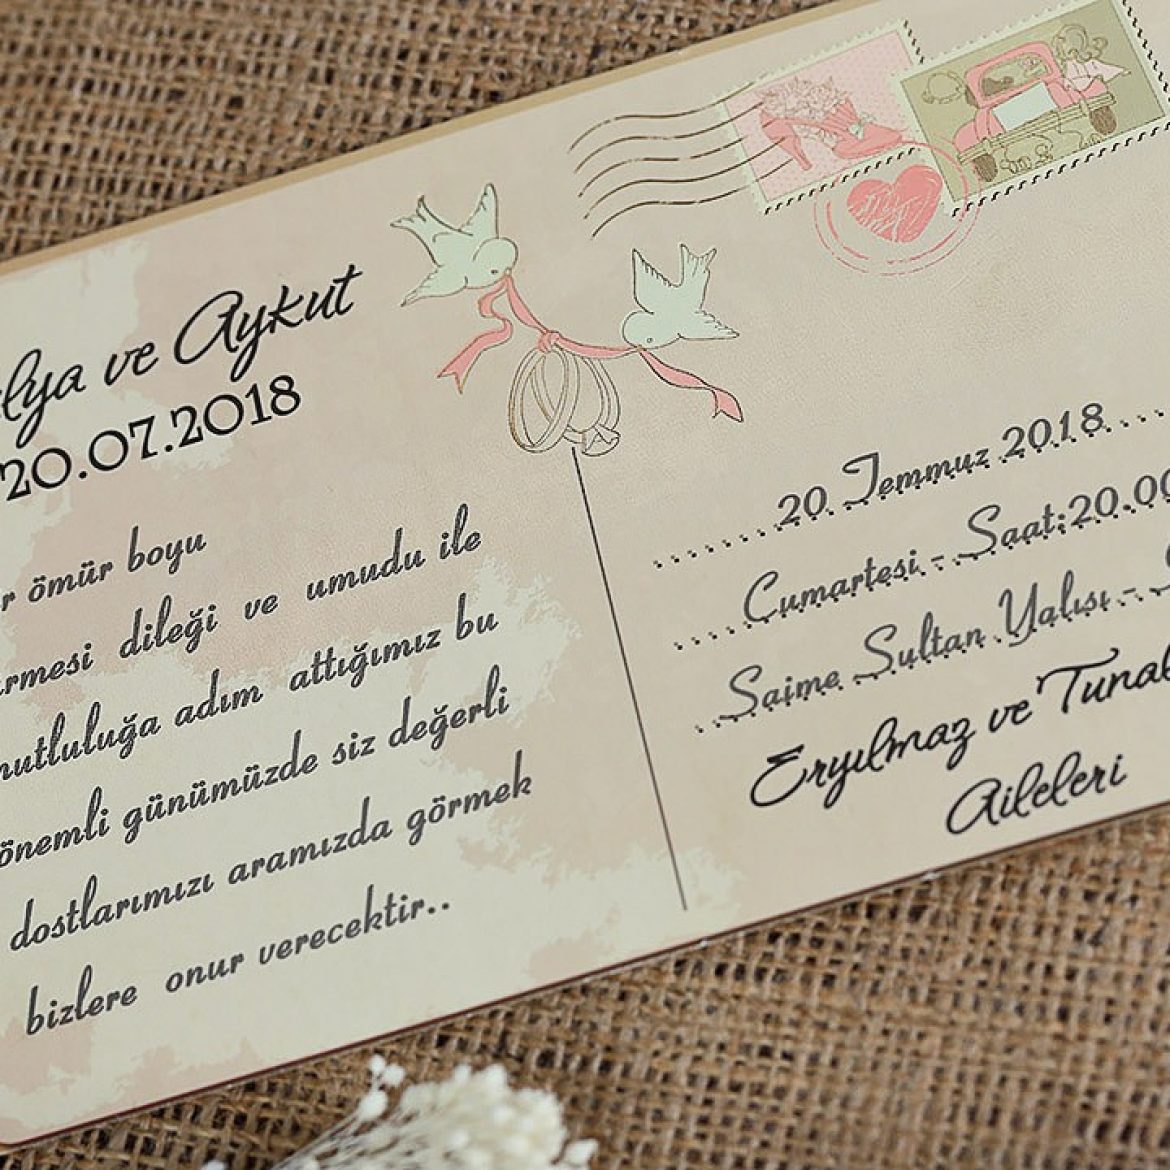 lya ve Aykut
20.07.2018
r ömür boyu
rmesi dileği ve umudu ile
mutluluğa adım attığımız bu
önemli günümüzde siz değerli
dostlarımızı aramızda görmek
bizlere onur verecektir..
20 Temmuz 2018
Cumartesi - Saat:20.00
Saime Sultan Yalısı -
Eryılmaz ve Tunal
Aileleri